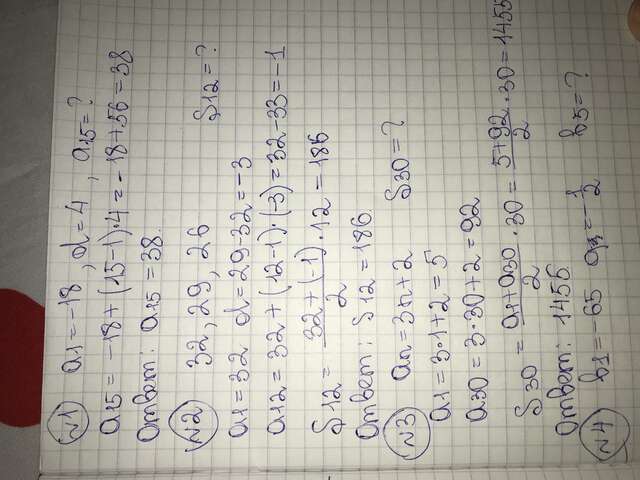 №1 a1 = -18, d = 4, a15 = ?
a15 = -18 + (15-1)·4 = -18 + 56 = 38
Ответ: a15 = 38.
№2 32, 29, 26 S12 = ?
a1 = 32 d = 29-32 = -3
a12 = 32 + (12-1)·(-3) = 32-33 = -1
S12 = (32 + (-1))/2 · 12 = 186
Ответ: S12 = 186
№3 an = 3n+2 S30 = ?
a1 = 3·1+2 = 5
a30 = 3·30+2 = 92
S30 = (a1+a30)/2 · 30 = (5+92)/2 · 30 = 1455
Ответ: 1455
№4 b1 = -65 q = -1/2 b5 = ?